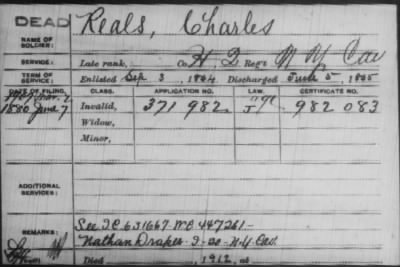 DEAD Reals, Charles
NAME OF SOLDIER:
SERVICE: Late rank, Co. H, 2 Reg't N Y Cav
TERM OF SERVICE: Enlisted Sep 3, 1864 Discharged June 5, 1865
DATE OF FILING. CLASS. APPLICATION NO. LAW. CERTIFICATE NO.
1880 June 7 Invalid, 371 982 J 982 083
Widow,
Minor,
ADDITIONAL SERVICES:
REMARKS: See I C 631667 W C 447261-
Nathan Draper I-20-N.Y. Cav.
Died , 1912, at